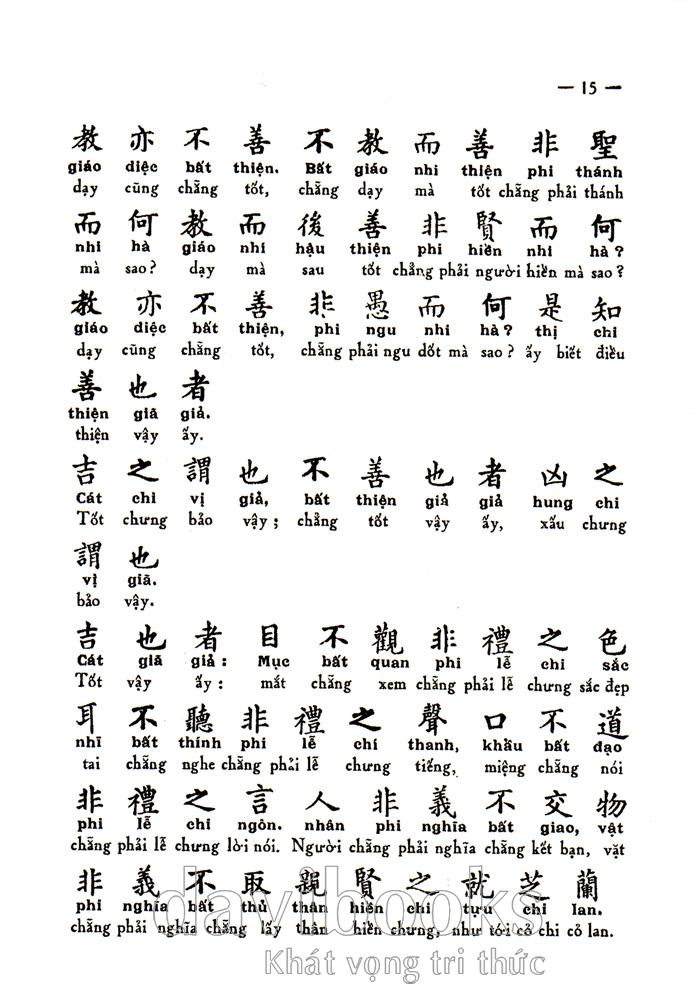 — 15 —
教 亦 不 善 不 教 而 善 非 聖
giáo diệc bất thiện. Bất giáo nhi thiện phi thánh
dạy cũng chẳng tốt, chẳng dạy mà tốt chẳng phải thánh
而 何 教 而 後 善 非 賢 而 何
nhi hà giáo nhi hậu thiện phi hiền nhi hà?
mà sao? dạy mà sau tốt chẳng phải người hiền mà sao?
教 亦 不 善 非 愚 而 何 是 知
giáo diệc bất thiện, phi ngu nhi hà? thị chi
dạy cũng chẳng tốt, chẳng phải ngu dốt mà sao? ấy biết điều
善 也 者
thiện giã giả.
thiện vậy ấy.
吉 之 謂 也 不 善 也 者 凶 之
Cát chi vị giả, bất thiện giả giả hung chi
Tốt chưng bảo vậy; chẳng tốt vậy ấy, xấu chưng
謂 也
vị giã.
bảo vậy.
吉 也 者 目 不 觀 非 禮 之 色
Cát giã giả: Mục bất quan phi lễ chi sắc
Tốt vậy ấy: mắt chẳng xem chẳng phải lễ chưng sắc đẹp
耳 不 聽 非 禮 之 聲 口 不 道
nhĩ bất thính phi lễ chi thanh, khẩu bất đạo
tai chẳng nghe chẳng phải lễ chưng tiếng, miệng chẳng nói
非 禮 之 言 人 非 義 不 交 物
phi lễ chi ngôn. nhân phi nghĩa bất giao, vật
chẳng phải lễ chưng lời nói. Người chẳng phải nghĩa chẳng kết bạn, vật
非 義 不 取 親 賢 之 就 芝 蘭
phi nghĩa bất thủ thân hiền chi tựu chi lan.
chẳng phải nghĩa chẳng lấy thân hiền chưng, như tới cỏ chi cỏ lan.
davibooks
Khát vọng tri thức